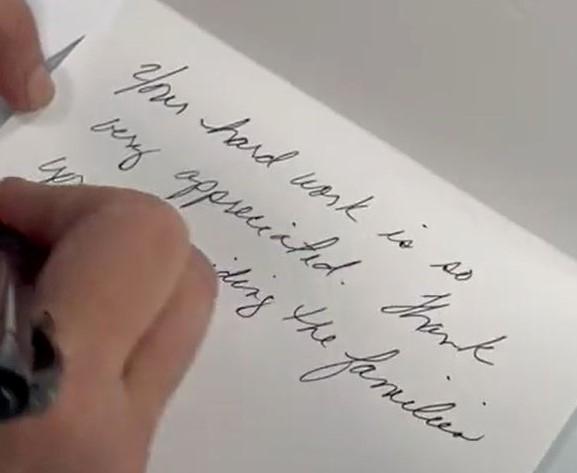 Your hard work is so
very appreciated. Thank
the families